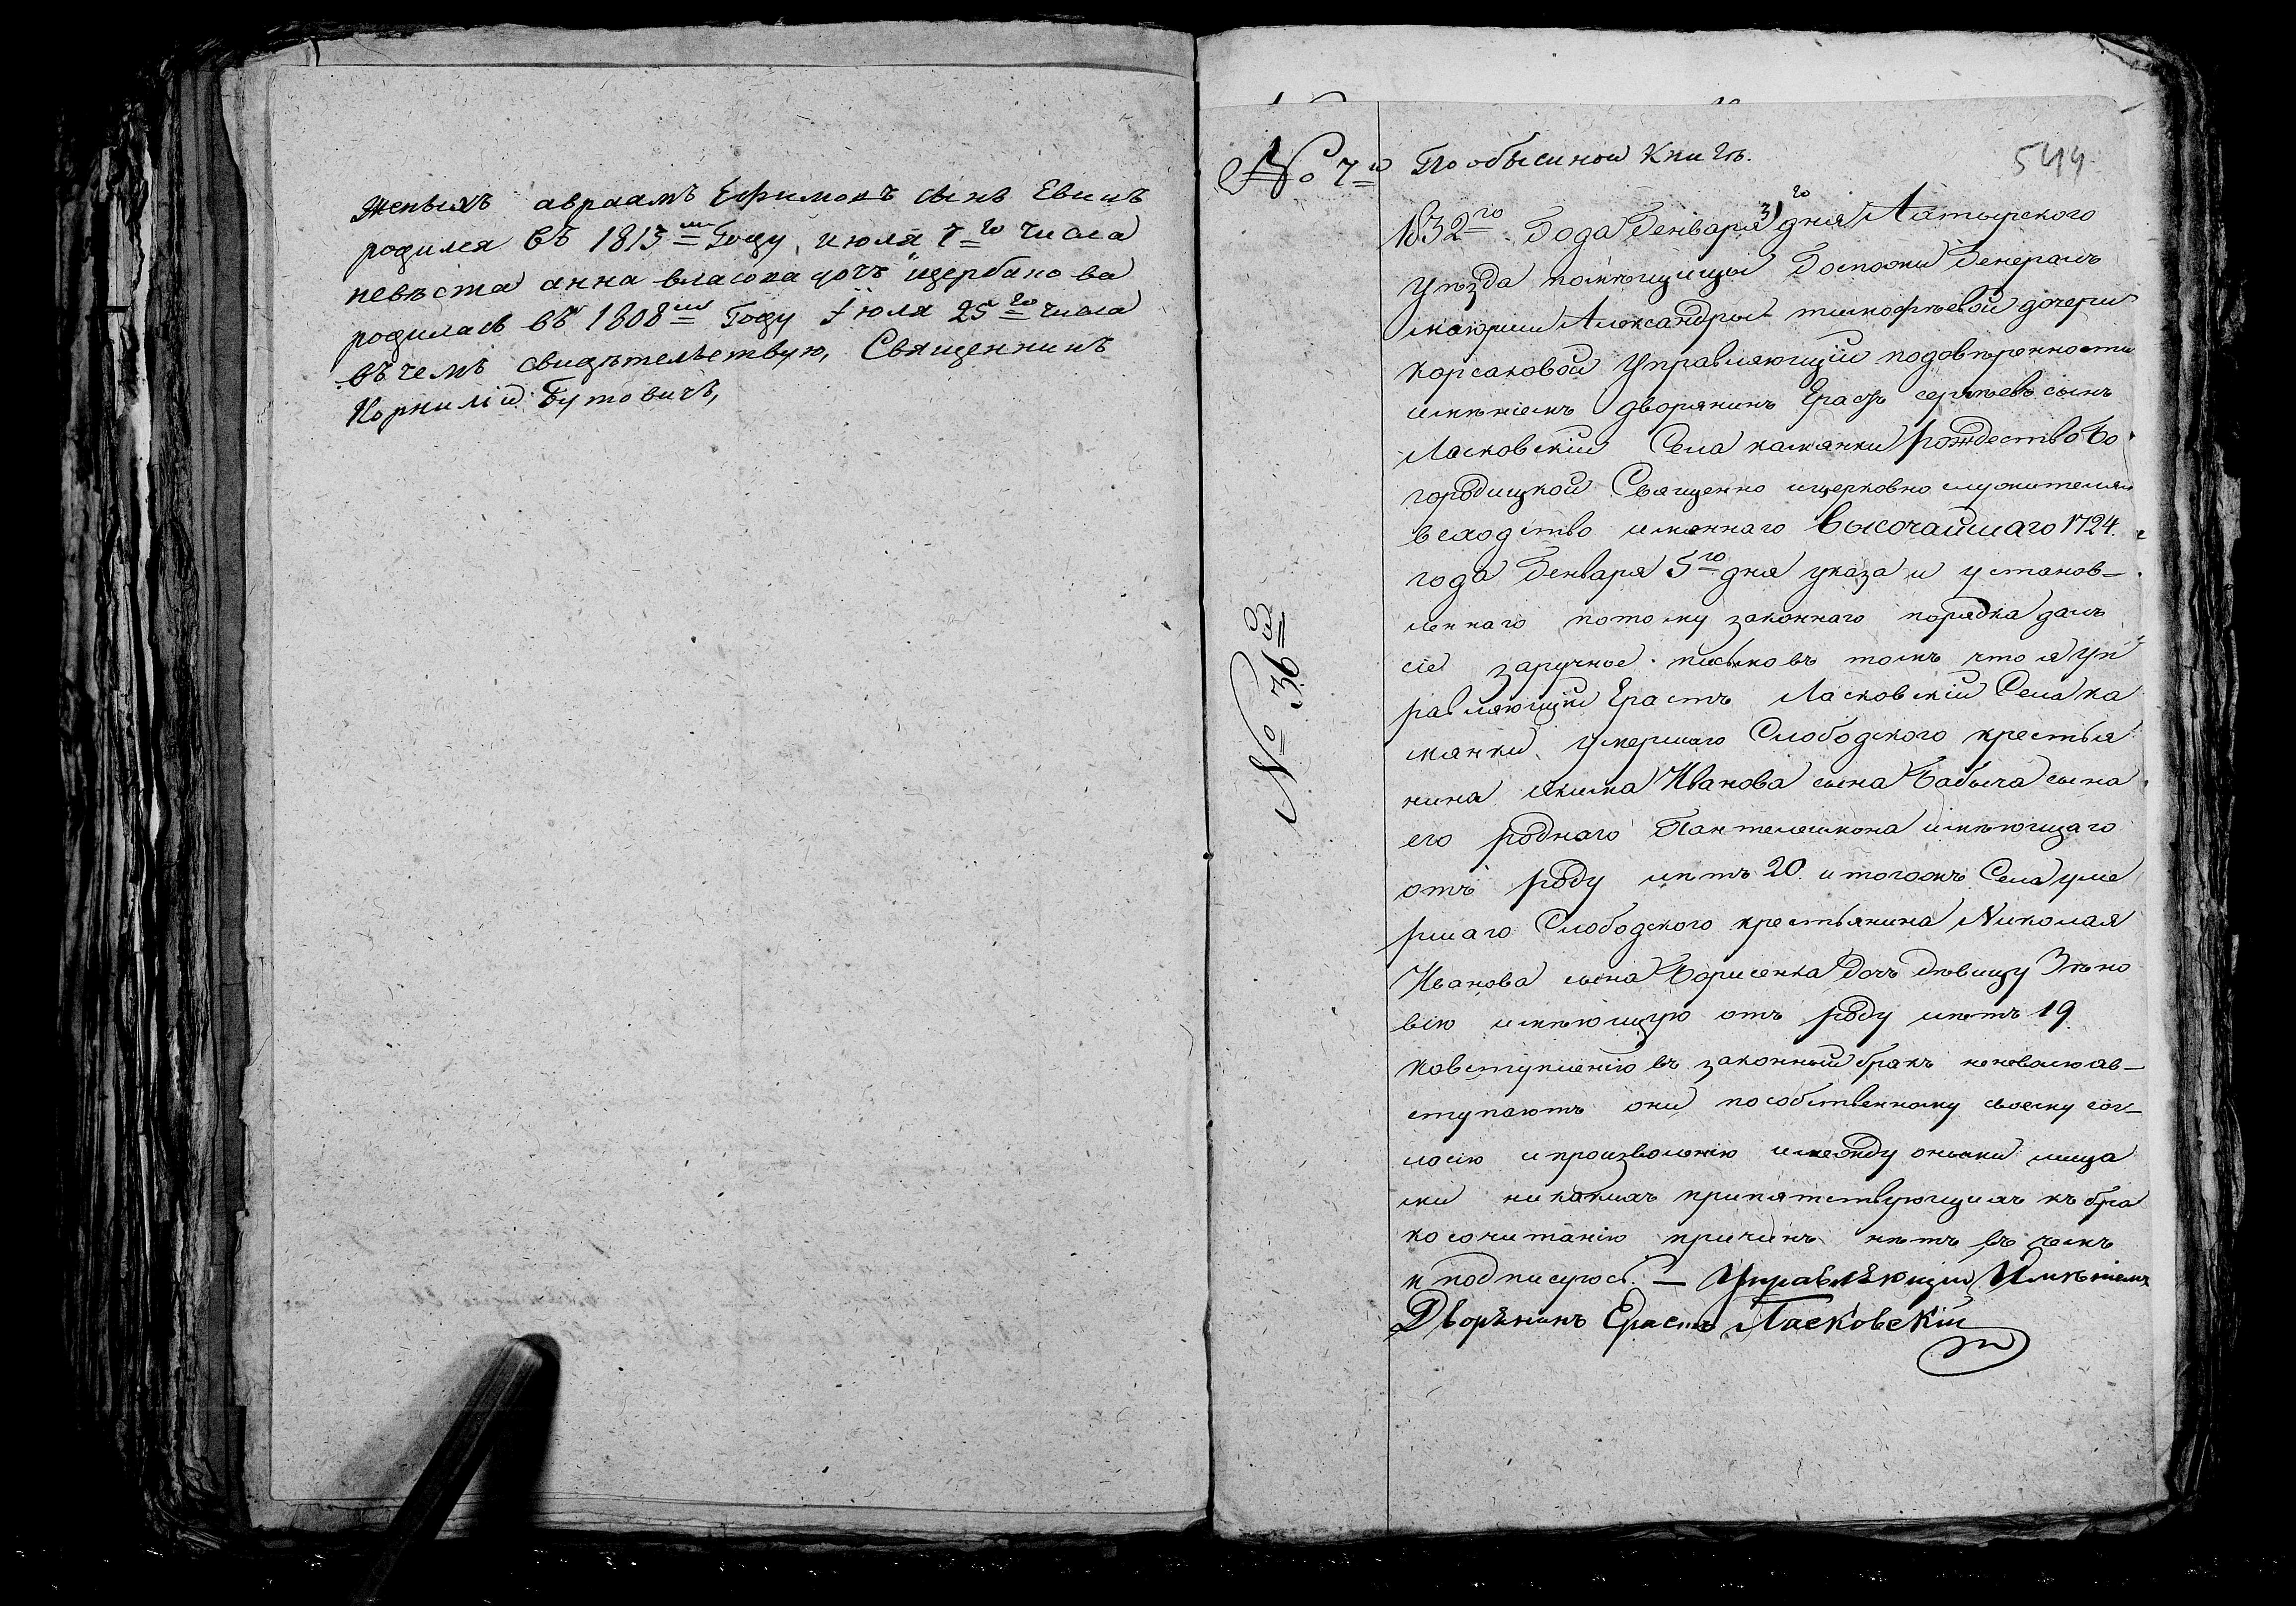 Женыхъ авраамъ Ефимовъ сынъ Евинъ
родился въ 1813ᵐ Году, июля 7ᵍᵒ числа
невѣста анна власова дочь щербано ва
родилась въ 1808ᵐ Году Июля 25ᵍᵒ числа
въ чемъ свидѣтельствую, Священникъ
Корнилій Бутовичъ,
№ 7й По обысной Книгѣ.
544
1832го Года Генваря 31го дня Ахтырского
уѣзда помѣщицы Госпожи Генералъ
маюрши Александры тимофѣевой дочери
корсаковой Управляющій подовѣренности
имѣніемъ дворянинъ Ерастъ сергѣевъ сынъ
Ласковскій Села камянки рождество Бо
городицкой Священно ицерковно служителям
вслодство именнаго Высочайшаго 1724.
года Генваря 5го дня указа и установ–
леннаго потому законнаго порядка далъ
сіе заручное письмо въ томъ что я Уп
равляющій Ерастъ Ласковскій Села ка
мянки умершаго Слободского крестья
нина якима Иванова сына Бабыча сына
его роднаго Пантелеимона имѣющаго
отъ роду лѣтъ 20. и тогожъ Села уме
ршаго Слободского крестьянина Николая
Иванова сына Борисенка дочь дѣвицу Зѣно
вію имѣющую отъ роду лѣтъ 19.
№ 36й
ковступленію въ законный бракъ неневолю ав–
ступаютъ они пособственному своему сог–
ласію ипроизволенію имежду оными лица
ми никакихъ припятствующихъ къ бра
косочитанію причинъ нѣтъ въ чемъ
и подписуюсь. — Управляющій Имѣніемъ
Дворянинъ Ерастъ Ласковскій